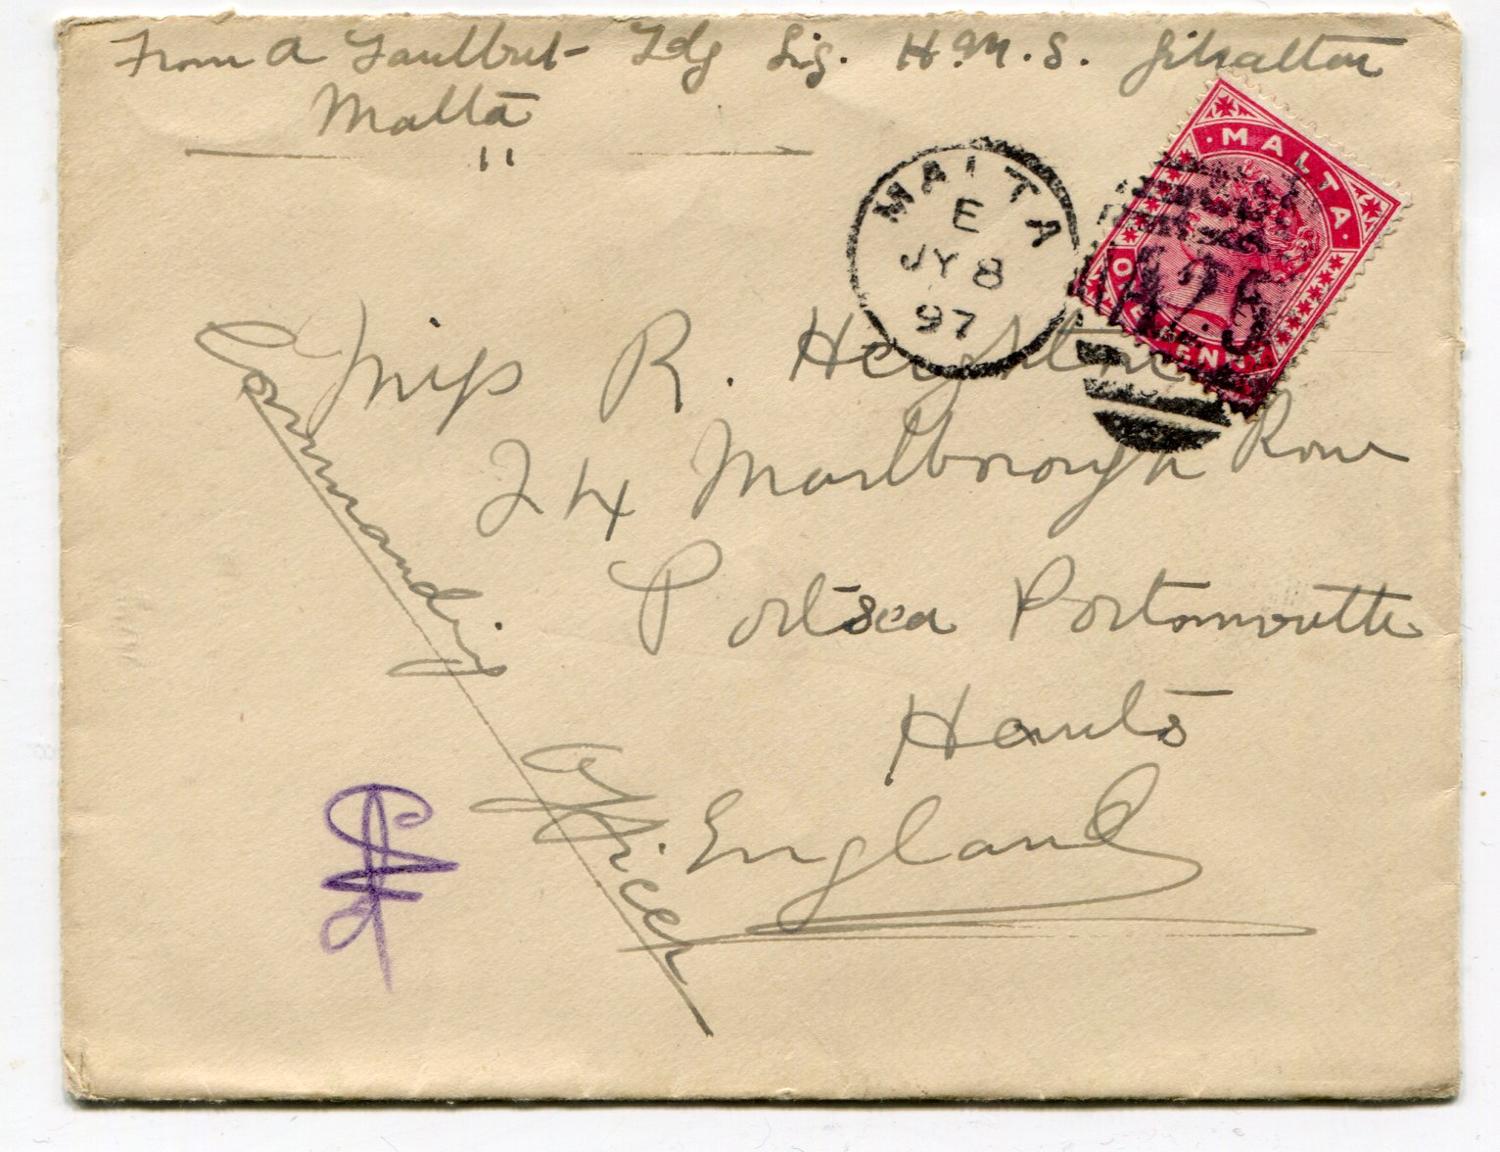 From A Faulbut Ldg Sig. H.M.S. Gibraltar
Malta
MALTA
E
JY 8
97
MALTA
A25
ONE PENNY
Miss R.
24 Marlborough Row
Portsea Portsmouth
Hants
England
Commandg
Officer